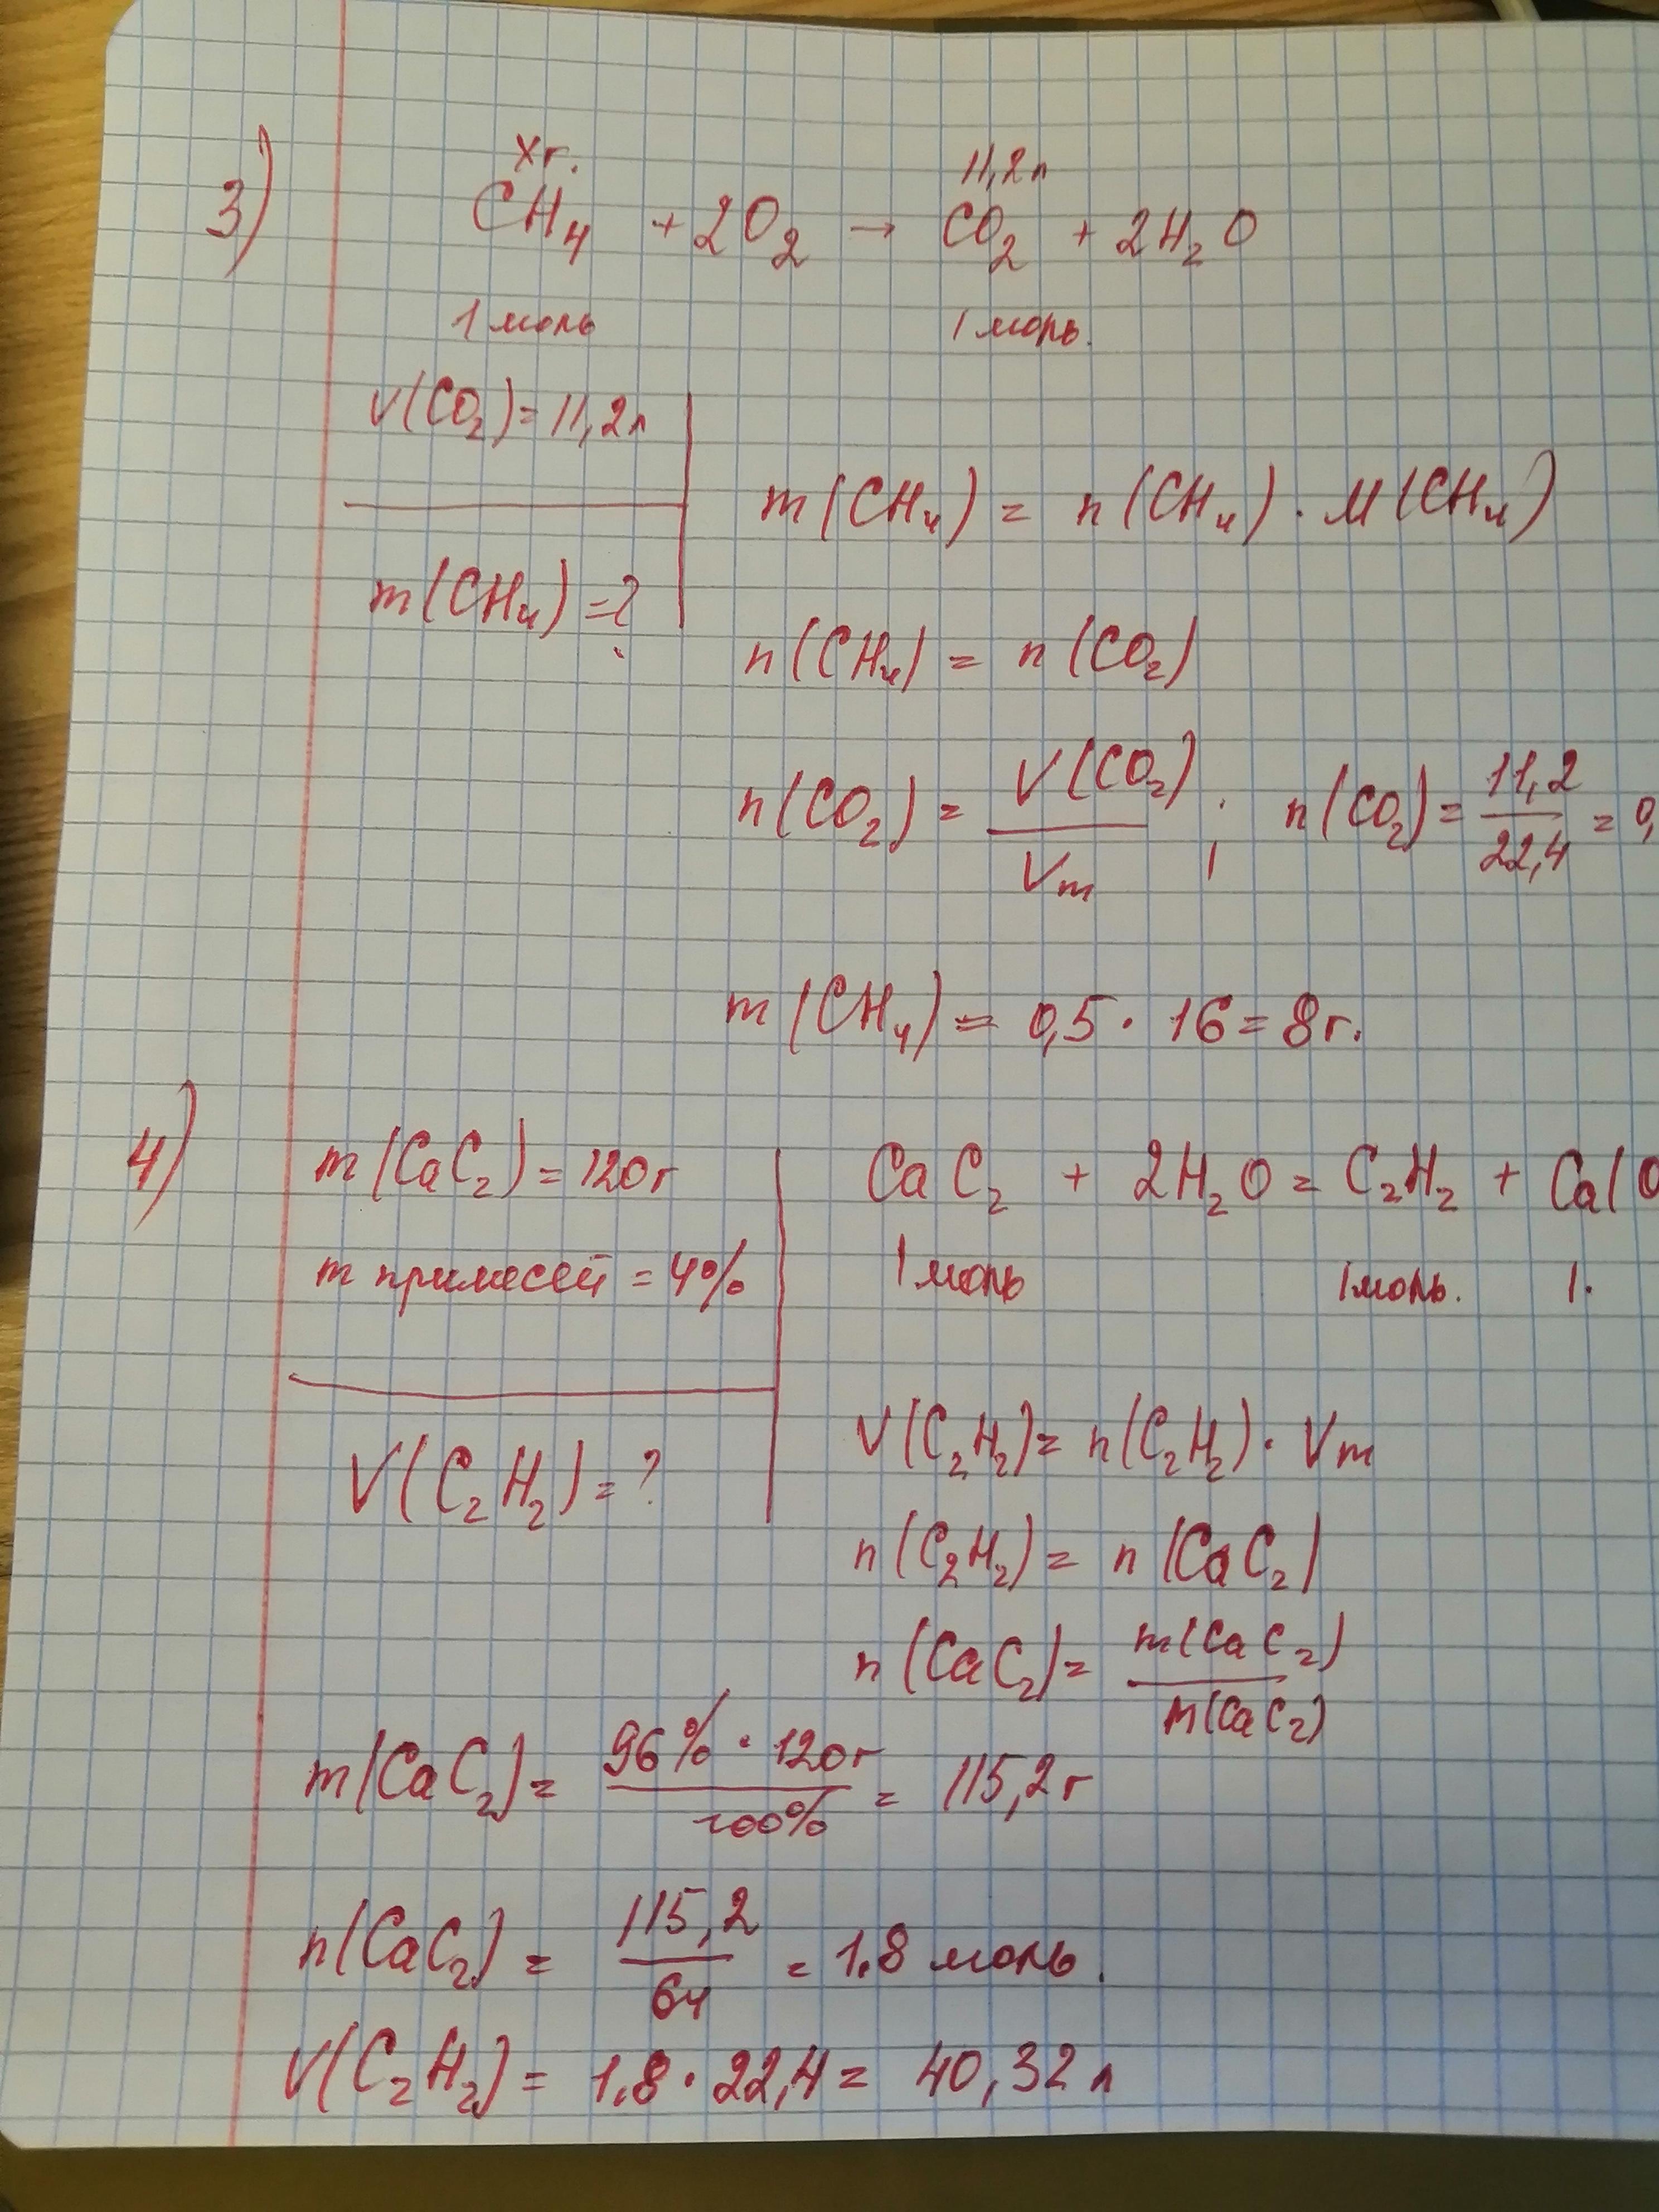 3)
xг. 11,2л
CH₄ + 2O₂ → CO₂ + 2H₂O
1 моль 1 моль.
V(CO₂) = 11,2л
m(CH₄) = ?
m(CH₄) = n(CH₄) · M(CH₄)
n(CH₄) = n(CO₂)
n(CO₂) = V(CO₂) / Vm ; n(CO₂) = 11,2 / 22,4 = 0,
m(CH₄) = 0,5 · 16 = 8г.
4)
m(CaC₂) = 120г
m примесей = 4%
V(C₂H₂) = ?
CaC₂ + 2H₂O = C₂H₂ + Ca(O
1 моль 1 моль. 1.
V(C₂H₂) = n(C₂H₂) · Vm
n(C₂H₂) = n(CaC₂)
n(CaC₂) = m(CaC₂) / M(CaC₂)
m(CaC₂) = 96% · 120г / 100% = 115,2г
n(CaC₂) = 115,2 / 64 = 1.8 моль.
V(C₂H₂) = 1.8 · 22,4 = 40,32л